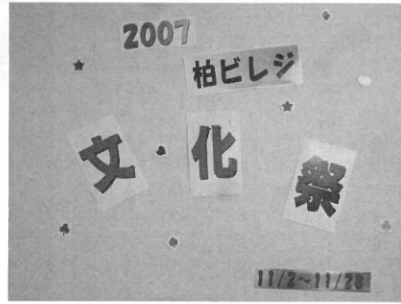 2007
柏ビレジ
文・化祭
11/2～11/28